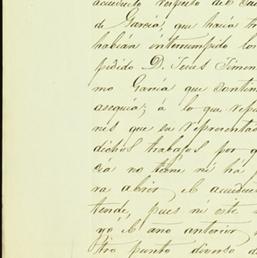 acueducto respecto del
de García, que hacía
habían interrumpido los
pedido D. Jesús Jimen
mo García que contin
asequia; á lo que repu
nes que su representad
dichos trabajos por q
cía no tiene ni ha
ra abrir el acuedu
tende, pues ni este
yó el año anterior
tro punto diverso d